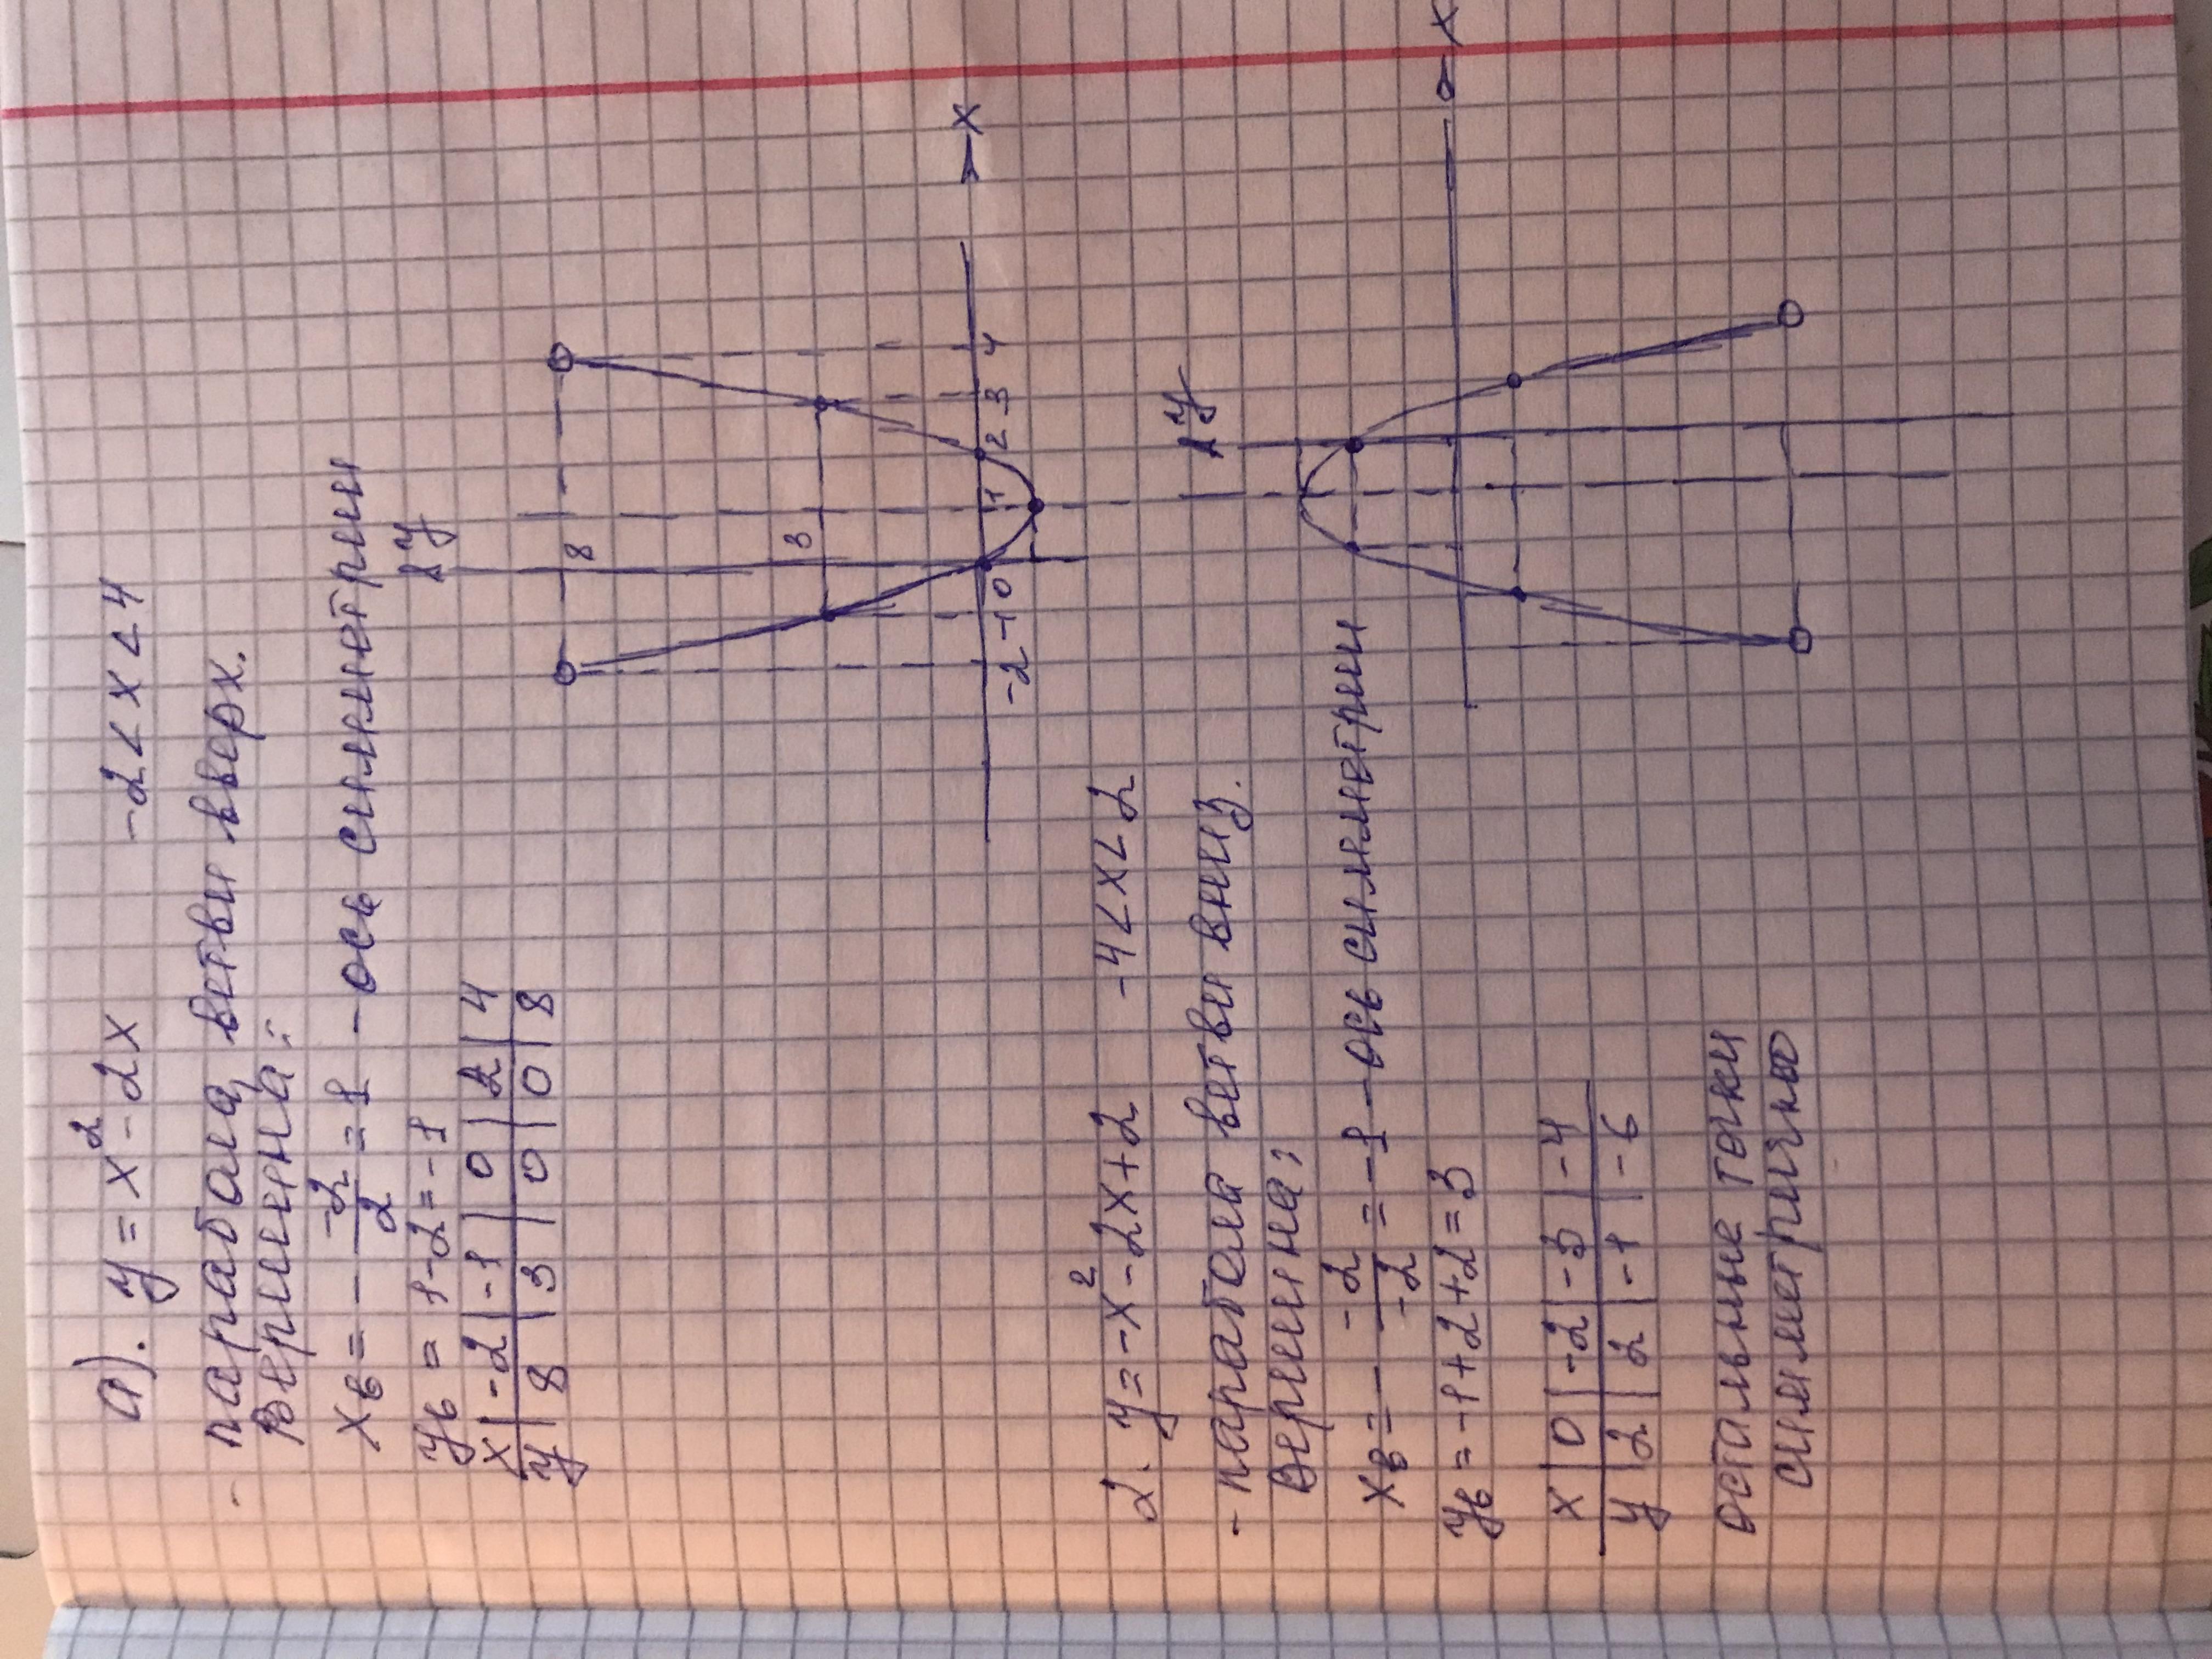 а). y = x² - 2x -2 < x < 4
- парабола, ветви вверх.
Вершина:
xв = - -2/2 = 1 - ось симметрии
yв = 1 - 2 = -1
x | -2 | -1 | 0 | 2 | 4
y | 8 | 3 | 0 | 0 | 8
y
8
3
-2 -1 0 1 2 3 4 x
2. y = -x² - 2x + 2 -4 < x < 2
- парабола ветви вниз.
Вершина:
xв = - -2/-2 = -1 - ось симметрии
yв = -1 + 2 + 2 = 3
x | 0 | -2 | -3 | -4
y | 2 | 2 | -1 | -6
остальные точки
симметрично
y
x